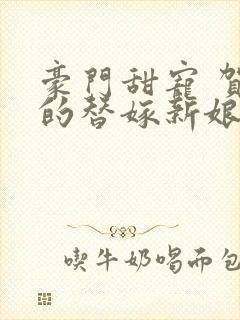 豪門甜寵 賀
的替嫁新娘
喫牛奶喝面包